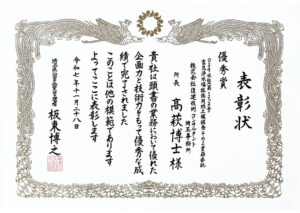 表彰状
優秀賞
株式会社復建技術コンサルタント
埼玉事務所
所長 髙萩博士様
貴社は頭書の業務において優れた
企画力と技術力をもって優秀な成
績で完了されました
このことは他の模範であります
よってここに表彰します
令和七年十一月二十八日
板東博之